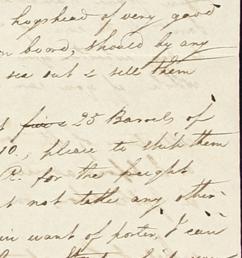 hogshead of very good
on board, should by any
sea out & sell them
five 35 Barrels of
10, please to ship them
R. for the freight
not take any other
in want of porter, I can